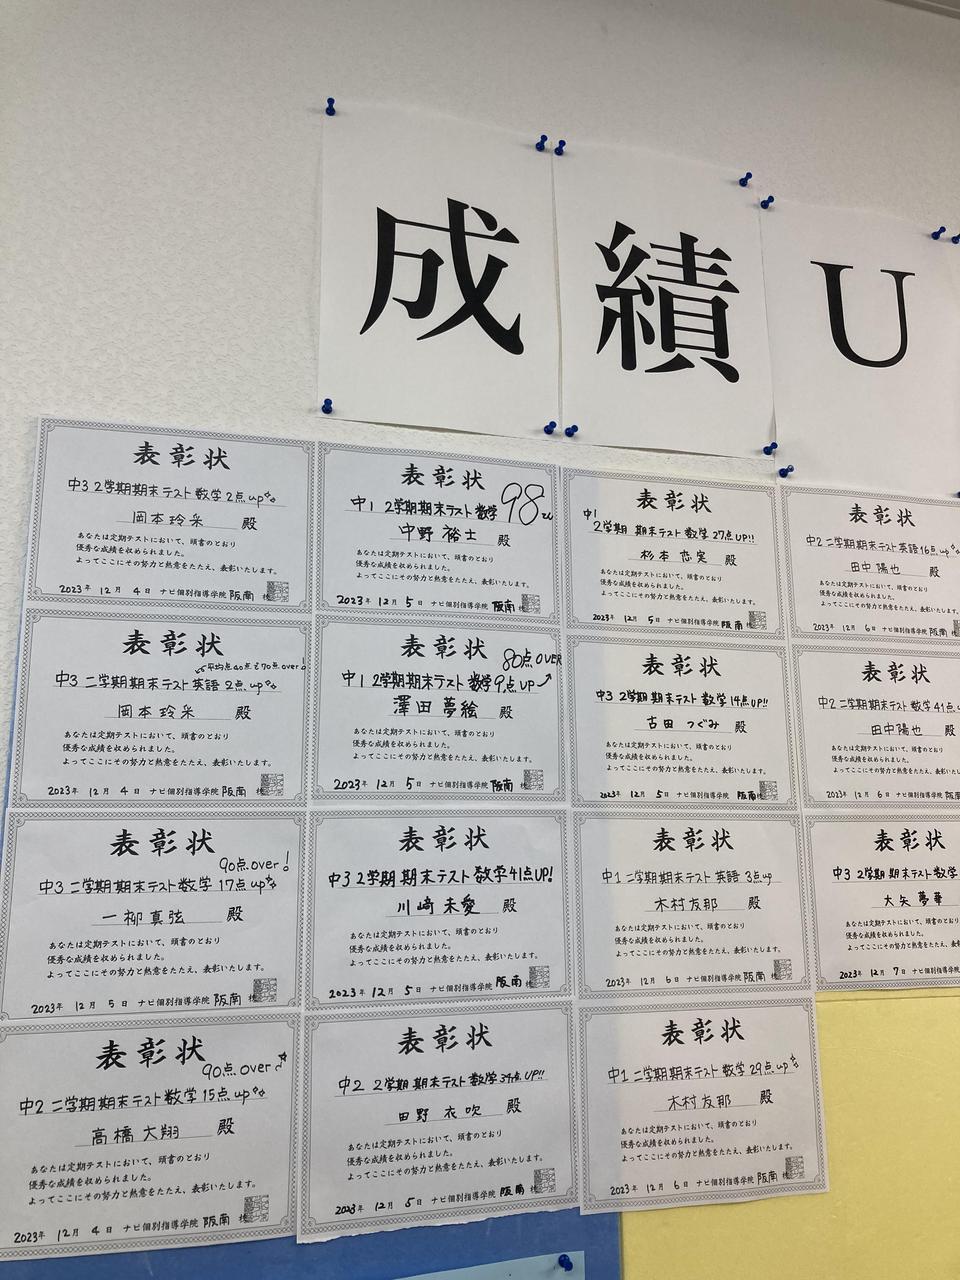 成績U
表彰状
中3 2学期期末テスト数学2点up
岡本玲采 殿
あなたは定期テストにおいて、頭書のとおり
優秀な成績を収められました。
よってここにその努力と熱意をたたえ、表彰いたします。
2023年 12月 4日 ナビ個別指導学院 阪南 校
表彰状
中1 2学期期末テスト数学 98
中野裕士 殿
あなたは定期テストにおいて、頭書のとおり
優秀な成績を収められました。
よってここにその努力と熱意をたたえ、表彰いたします。
2023年 12月 5日 ナビ個別指導学院 阪南 校
表彰状
中1
2学期 期末テスト 数学 27点UP!!
杉本恋実 殿
あなたは定期テストにおいて、頭書のとおり
優秀な成績を収められました。
よってここにその努力と熱意をたたえ、表彰いたします。
2023年 12月 5日 ナビ個別指導学院 阪南
表彰状
中2 二学期期末テスト英語16点up
田中陽也 殿
あなたは定期テストにおいて、頭書のとおり
優秀な成績を収められました。
よってここにその努力と熱意をたたえ、表彰いたします。
2023年 12月 6日 ナビ個別指導学院 阪南
表彰状
平均点40点で70点over!
中3 二学期期末テスト英語 2点up
岡本玲采 殿
あなたは定期テストにおいて、頭書のとおり
優秀な成績を収められました。
よってここにその努力と熱意をたたえ、表彰いたします。
2023年 12月 4日 ナビ個別指導学院 阪南 校
表彰状
80点OVER
中1 2学期期末テスト数学9点UP
澤田夢絵 殿
あなたは定期テストにおいて、頭書のとおり
優秀な成績を収められました。
よってここにその努力と熱意をたたえ、表彰いたします。
2023年 12月 5日 ナビ個別指導学院 阪南 校
表彰状
中3 2学期期末テスト数学14点UP!!
古田つぐみ 殿
あなたは定期テストにおいて、頭書のとおり
優秀な成績を収められました。
よってここにその努力と熱意をたたえ、表彰いたします。
2023年 12月 5日 ナビ個別指導学院 阪南
表彰状
中2 二学期期末テスト数学41点
田中陽也 殿
あなたは定期テストにおいて、頭書のとおり
優秀な成績を収められました。
よってここにその努力と熱意をたたえ、表彰いたし
2023年 12月 6日 ナビ個別指導学院 阪南
表彰状
90点over!
中3 二学期期末テスト数学17点up
一柳真弦 殿
あなたは定期テストにおいて、頭書のとおり
優秀な成績を収められました。
よってここにその努力と熱意をたたえ、表彰いたします。
2023年 12月 5日 ナビ個別指導学院 阪南 校
表彰状
中3 2学期期末テスト数学41点UP!
川崎未愛 殿
あなたは定期テストにおいて、頭書のとおり
優秀な成績を収められました。
よってここにその努力と熱意をたたえ、表彰いたします。
2023年 12月 5日 ナビ個別指導学院 阪南 校
表彰状
中1 二学期期末テスト英語3点up
木村友那 殿
あなたは定期テストにおいて、頭書のとおり
優秀な成績を収められました。
よってここにその努力と熱意をたたえ、表彰いたします。
2023年 12月 6日 ナビ個別指導学院 阪南 校
表彰状
中3 2学期期末テスト数学
大矢夢華 殿
あなたは定期テストにおいて、頭書のとおり
優秀な成績を収められました。
よってここにその努力と熱意をたたえ、表彰いた
2023年 12月 7日 ナビ個別指導学院 阪南
表彰状
90点over
中2 二学期期末テスト数学15点up
高橋大翔 殿
あなたは定期テストにおいて、頭書のとおり
優秀な成績を収められました。
よってここにその努力と熱意をたたえ、表彰いたします。
2023年 12月 4日 ナビ個別指導学院 阪南 校
表彰状
中2 2学期期末テスト数学34点UP!!
田野衣吹 殿
あなたは定期テストにおいて、頭書のとおり
優秀な成績を収められました。
よってここにその努力と熱意をたたえ、表彰いたします。
2023年 12月 5日 ナビ個別指導学院 阪南 校
表彰状
中1 二学期期末テスト数学29点up
木村友那 殿
あなたは定期テストにおいて、頭書のとおり
優秀な成績を収められました。
よってここにその努力と熱意をたたえ、表彰いたします。
2023年 12月 6日 ナビ個別指導学院 阪南 校